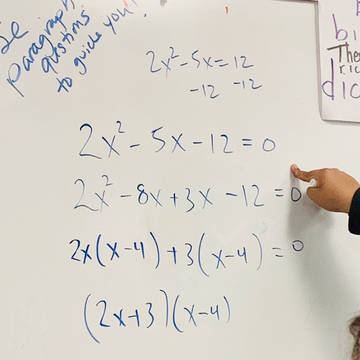 paragraph
questions
to guide you!
2x² - 5x = 12
-12 -12
2x² - 5x - 12 = 0
2x² - 8x + 3x - 12 = 0
2x(x-4) + 3(x-4) = 0
(2x+3)(x-4)
bi
The
dic